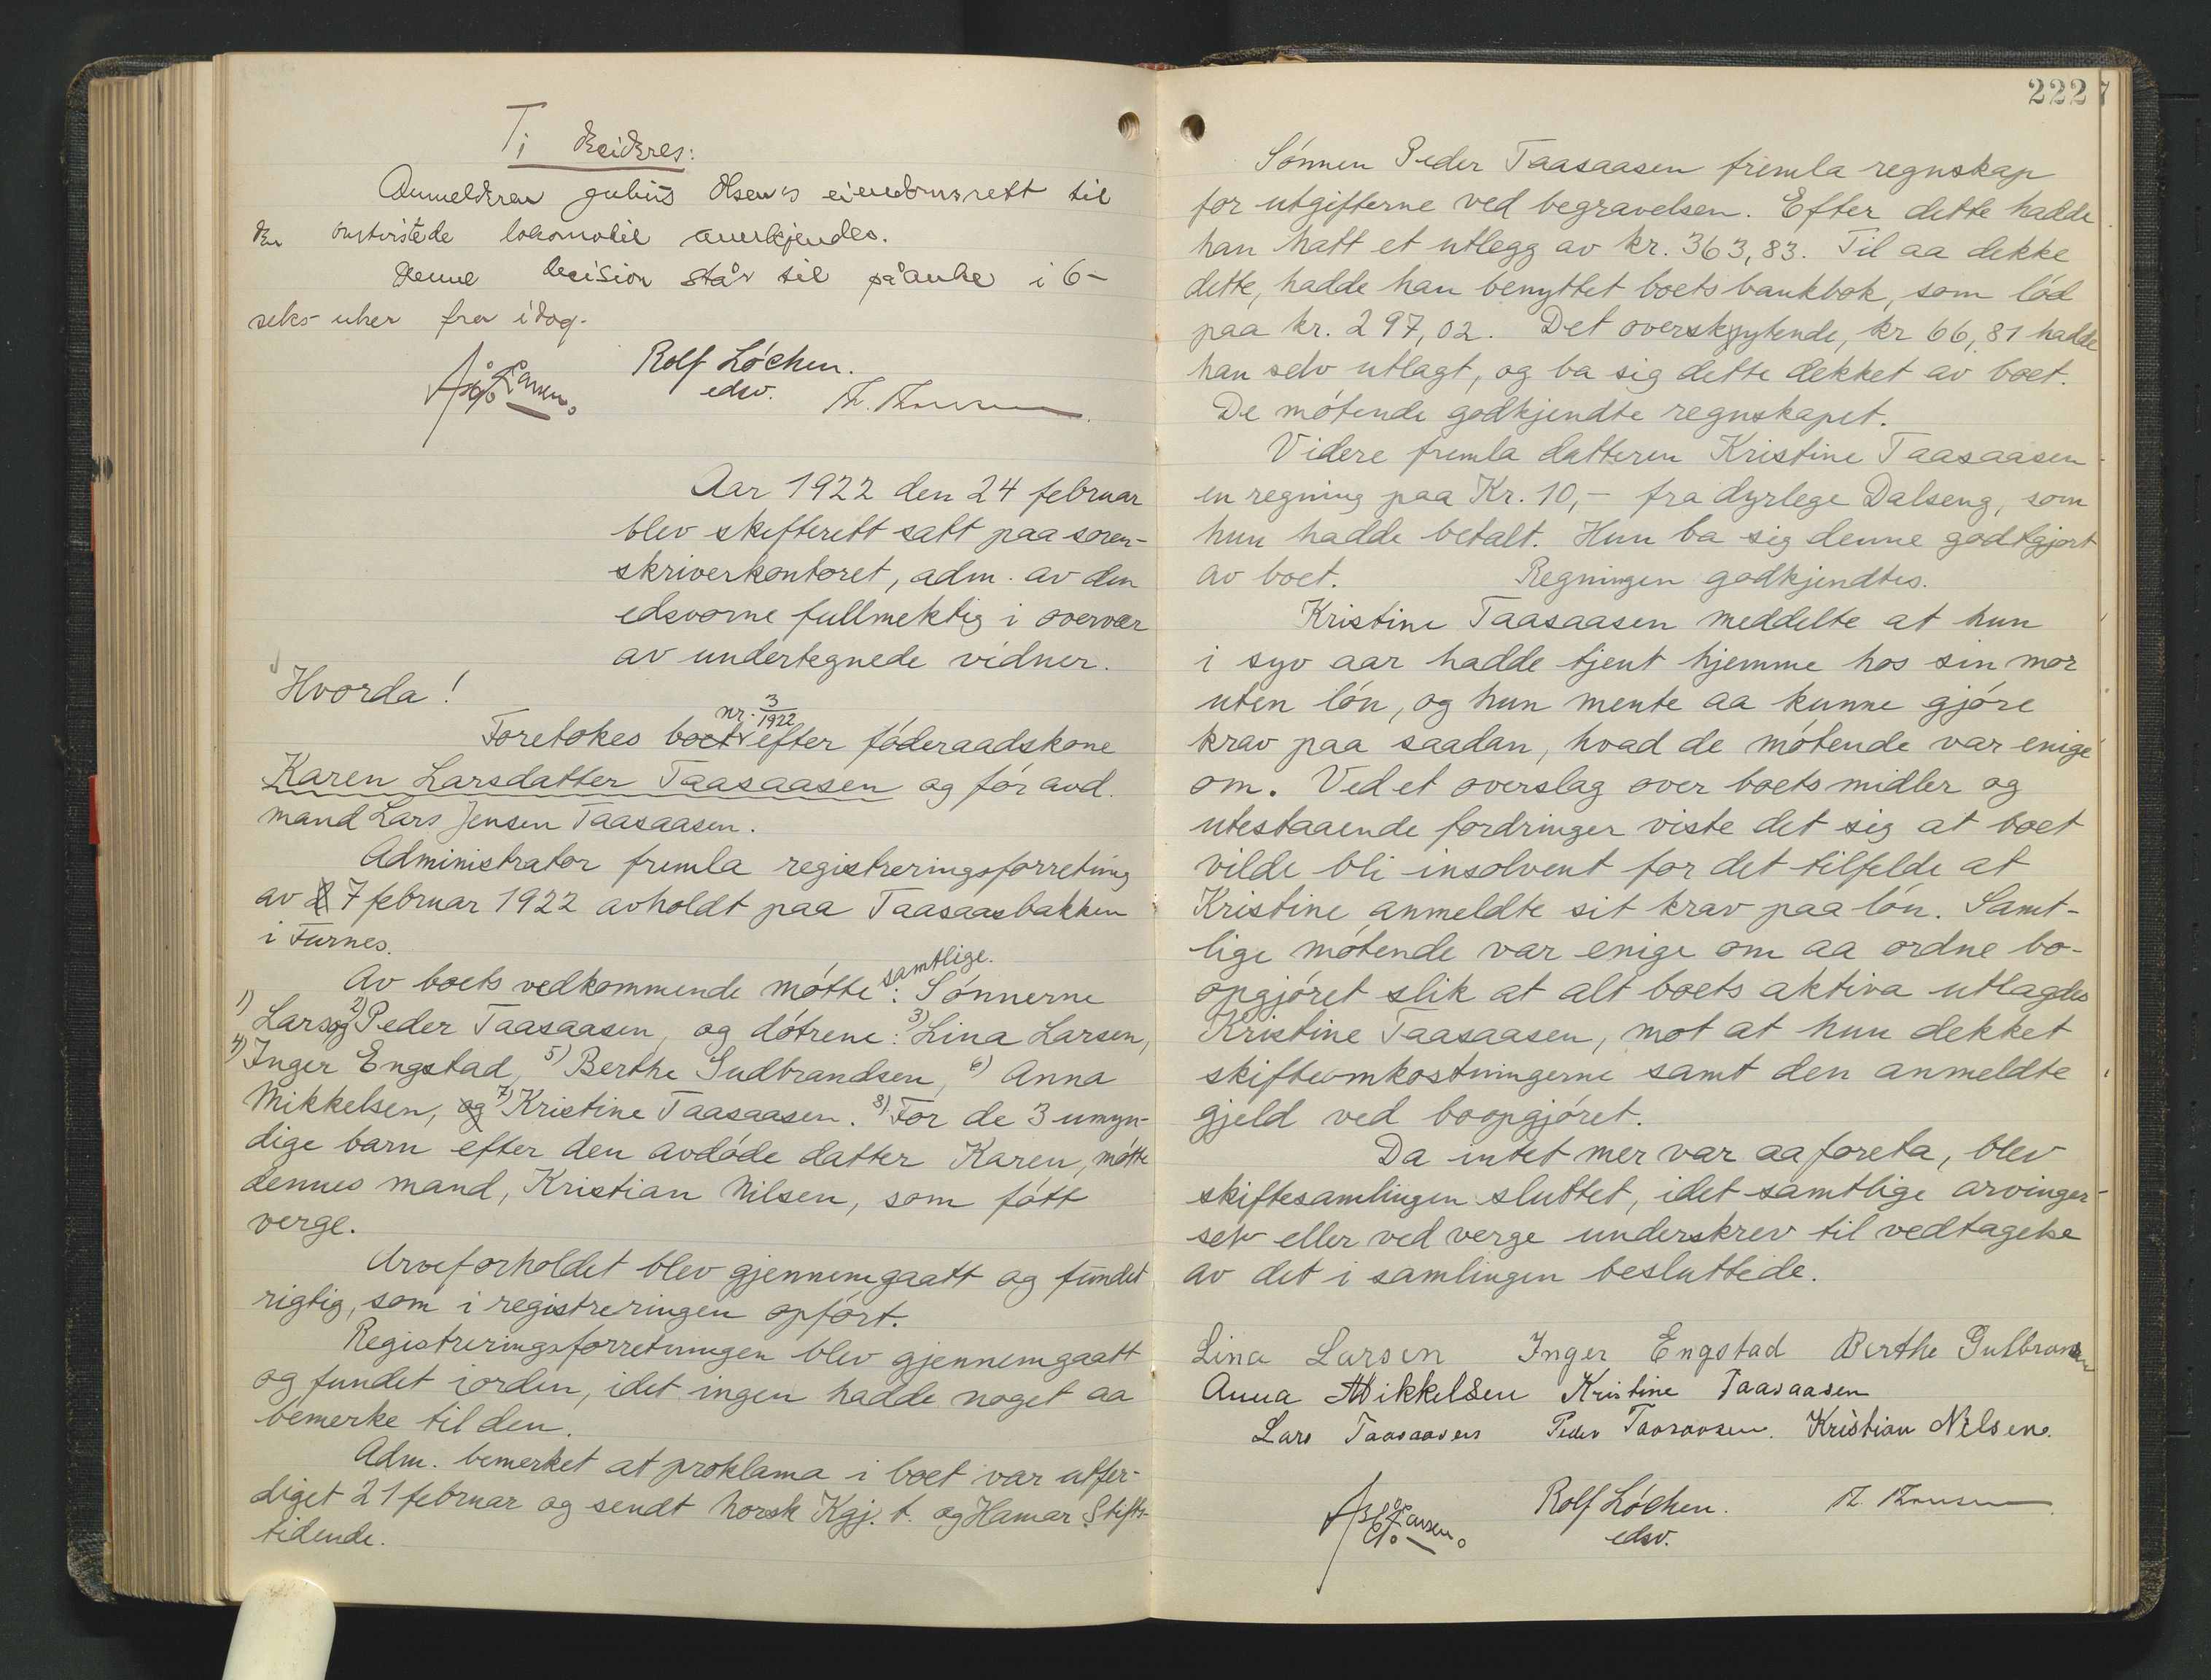 Ti beideres:
Anmelderen Julius Olsen's eiendomsrett til
den omtvistede lokomobil anerkjendes.
Denne decision står til påanke i 6-
seks- uker fra idag.
Rolf Lóchen.
edsv.
Aar 1922 den 24 februar
blev skifterett satt paa soren-
skriverkontoret, adm. av den
edsvorne fullmektig i overvær
av undertegnede vidner.
Hvorda!
nr. 3/1922
Foretokes boet efter fóderaadskone
Karen Larsdatter Taasaasen og fór avd.
mand Lars Jensen Taasaasen.
Administrator fremla registreringsforretning
av 7 februar 1922 avholdt paa Taasaasbakken
i Furnes.
samtlige.
Av boets vedkommende mótte: Sónnerne
1) Lars og 2) Peder Taasaasen, og dótrene: 3) Lina Larsen,
4) Inger Engstad, 5) Berthe Gudbrandsen, 6) Anna
Mikkelsen, og 7) Kristine Taasaasen. 8) For de 3 umyn-
dige barn efter den avdóde datter Karen, mótte
dennes mand, Kristian Nilsen, som fótt
verge.
Arveforholdet blev gjennemgaatt og fundet
rigtig, som i registreringen opfórt.
Registreringsforretningen blev gjennemgaatt
og fundet iorden, idet ingen hadde noget aa
bemerke til den.
Adm. bemerket at proklama i boet var utfer-
diget 21 februar og sendt Norsk Kgj. t. og Hamar Stifts-
tidende.
222
Sónnen Peder Taasaasen fremla regnskap
for utgifterne ved begravelsen. Efter dette hadde
han hatt et utlegg av kr. 363,83. Til aa dekke
dette, hadde han benyttet boets bankbok, som lód
paa kr. 297,02. Det overskytende, kr 66,81 hadde
han selv utlagt, og ba sig dette dekket av boet.
De mótende godkjendte regnskapet.
Videre fremla datteren Kristine Taasaasen
en regning paa Kr. 10,- fra dyrlege Dalseng, som
hun hadde betalt. Hun ba sig denne godtgjort
av boet. Regningen godkjendtes.
Kristine Taasaasen meddelte at hun
i syv aar hadde tjent hjemme hos sin mor
uten lón, og hun mente aa kunne gjóre
krav paa saadan, hvad de mótende var enige
om. Ved et overslag over boets midler og
utestaaende fordringer viste det sig at boet
vilde bli insolvent for det tilfelde at
Kristine anmeldte sit krav paa lón. Samt-
lige mótende var enige om aa ordne bo-
opgjóret slik at alt boets aktiva utlagdes
Kristine Taasaasen, mot at hun dekket
skifteomkostningerne samt den anmeldte
gjeld ved boopgjóret.
Da intet mer var aa foreta, blev
skiftesamlingen sluttet, idet samtlige arvinger
selv eller ved verge underskrev til vedtagelse
av det i samlingen besluttede.
Lina Larsen Inger Engstad Berthe Gulbransen
Anna Mikkelsen Kristine Taasaasen
Lars Taasaasen Peder Taasaasen. Kristian Nilsen.
Rolf Lóchen.
edsv.